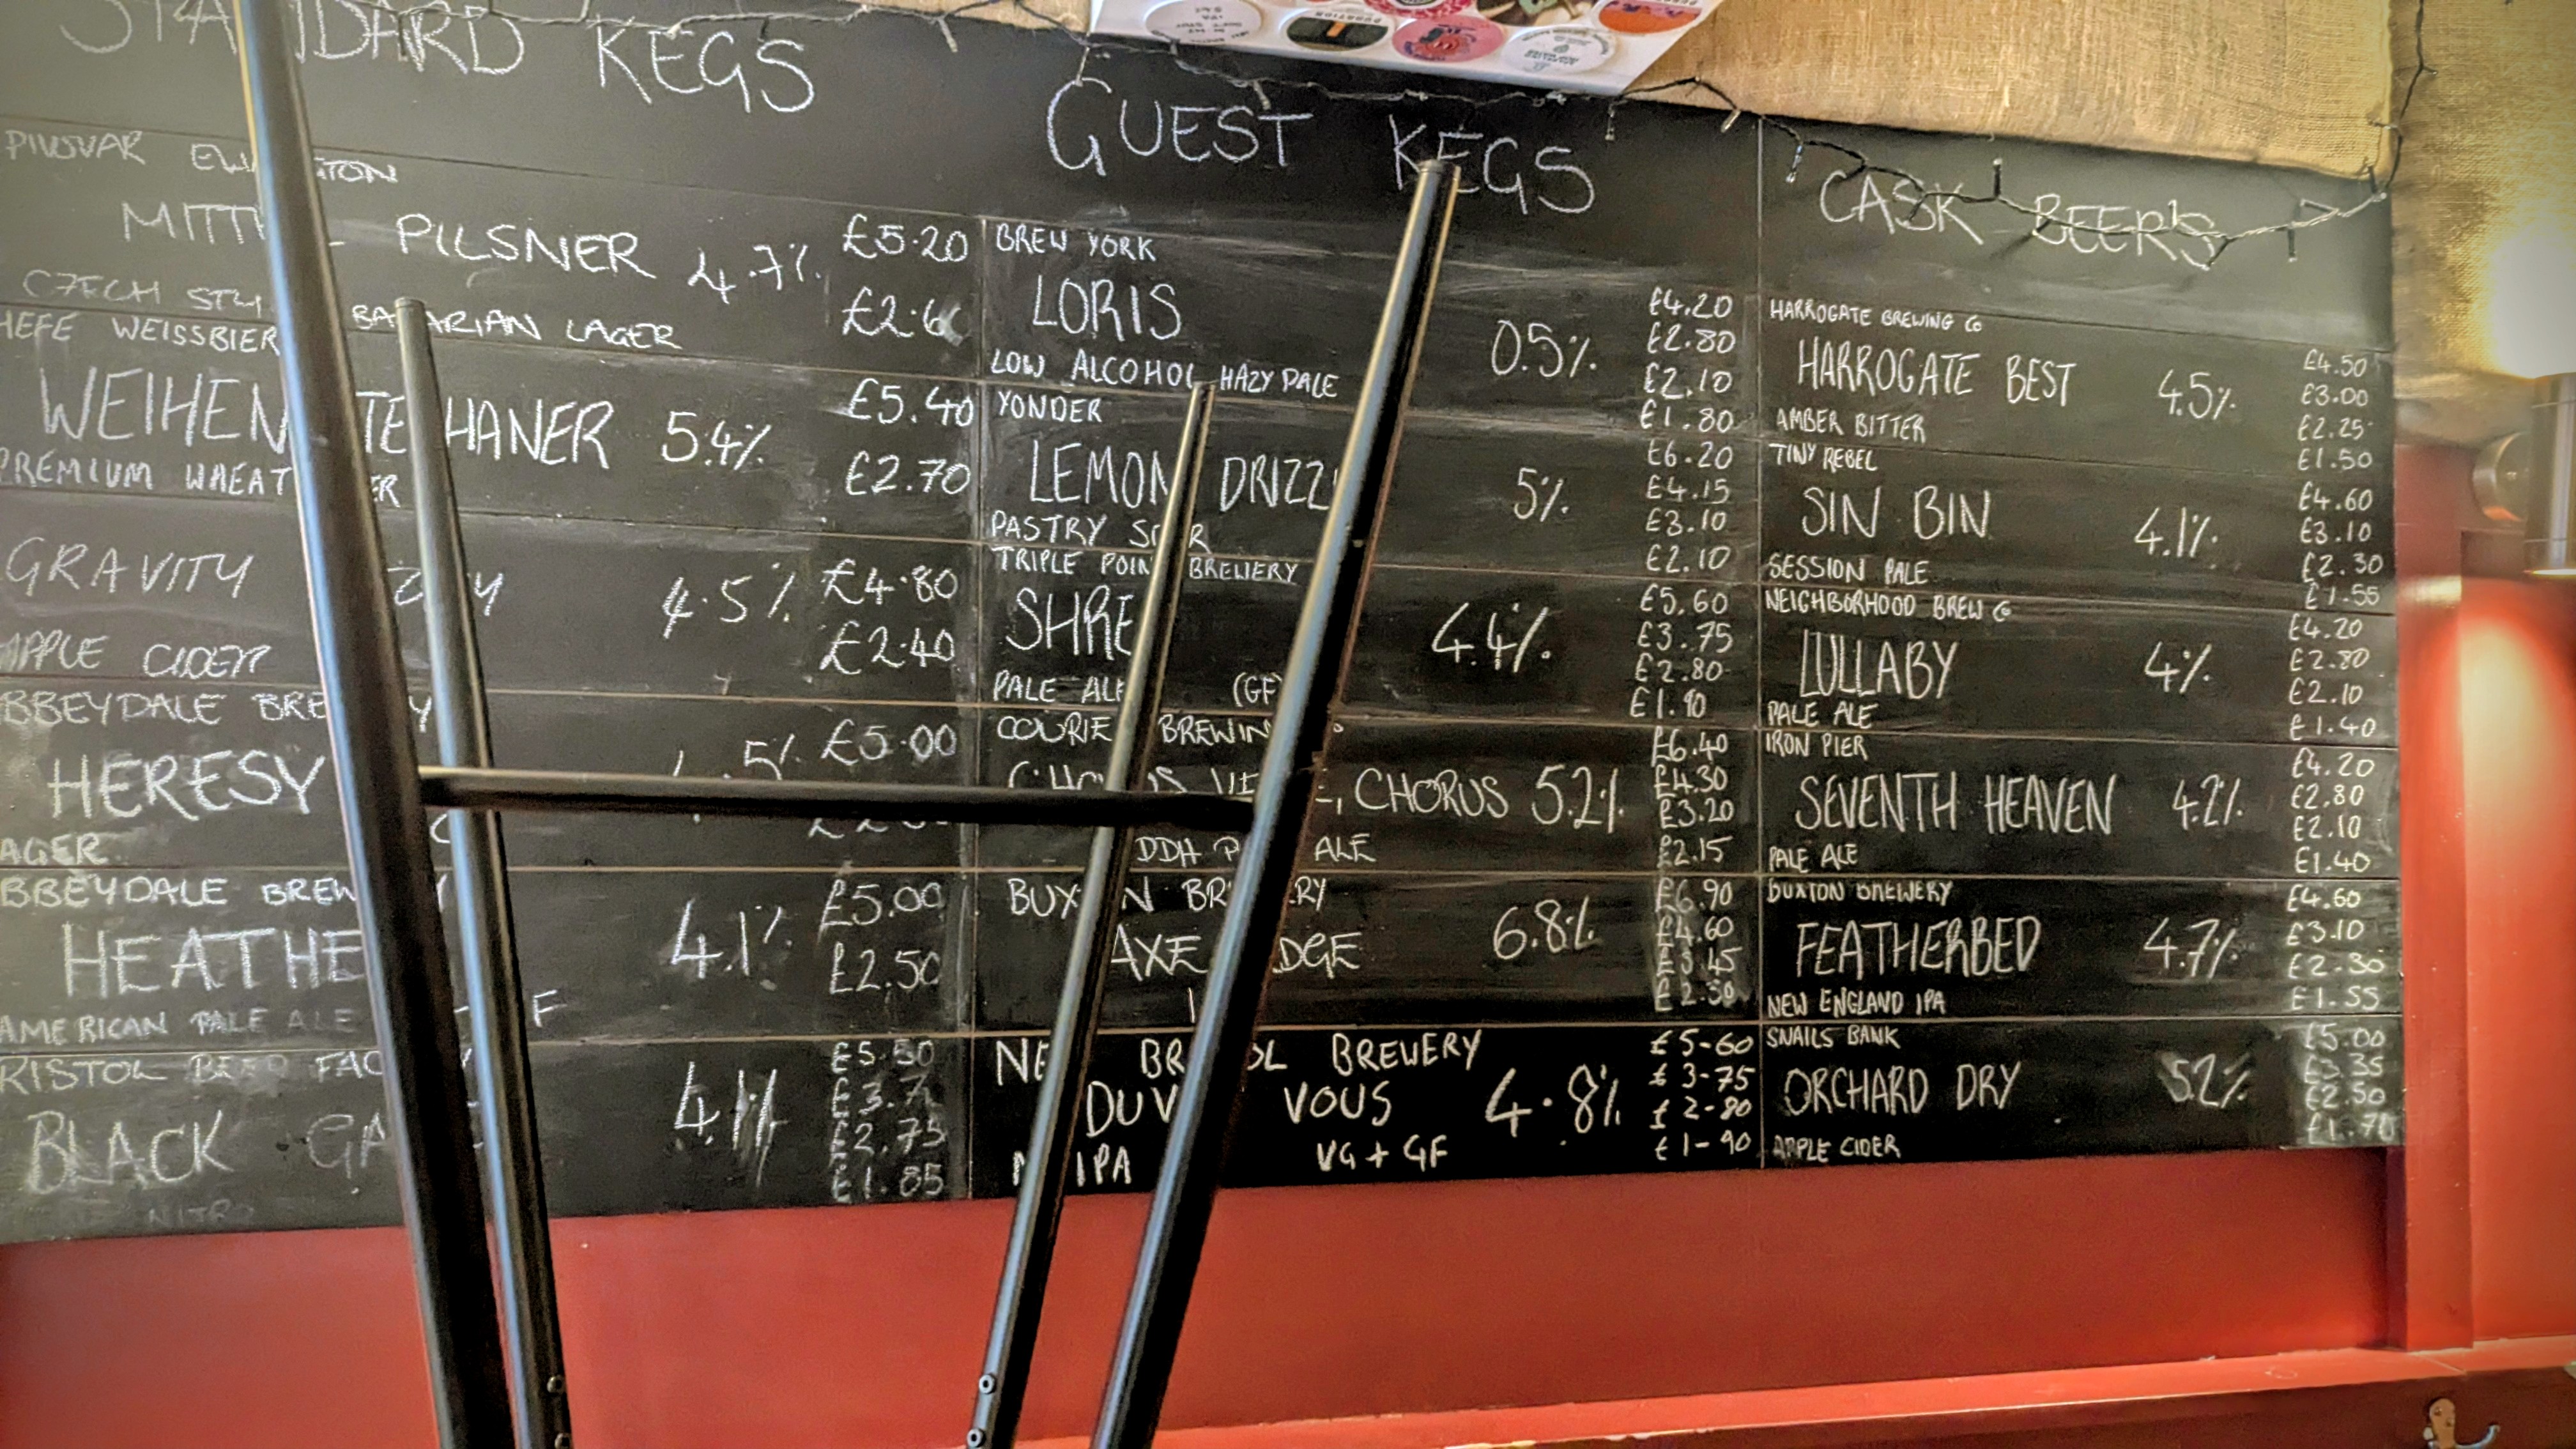 STANDARD KEGS
PIVOVAR
PILSNER 4.7% £5.20
CZECH BAVARIAN LAGER
HEFE WEISSBIER
WEIHEN TE HANER 5.4% £5.40
PREMIUM WHEAT £2.70
GRAVITY 4.5% £4.80
APPLE CIDER £2.40
BBEYDALE BRE Y
HERESY 5% £5.00
AGER
BBEYDALE BREW
HEATHE 4.1% £5.00
£2.50
AMERICAN PALE ALE
RISTOL BEER FAC £5.50
BLACK 4.1%
£2.75
£1.85
NITRO
GUEST KEGS
BREW YORK
LORIS 0.5% £4.20
£2.80
LOW ALCOHOL HAZY PALE £2.10
£1.80
YONDER £6.20
LEMON DRIZZ 5% £4.15
PASTRY £3.10
£2.10
TRIPLE POINT BREWERY
SHRE 4.4% £5.60
£3.75
PALE ALE (GF £2.80
£1.90
COURIE BREWIN £6.40
CHORUS 5.2% £4.30
£3.20
DDH ALE £2.15
BUX N BR RY £6.90
AXE DGE 6.8% £4.60
£3.45
£2.50
NE BR OL BREWERY £5-60
DUV VOUS 4.8% £3-75
£2-80
IPA VG + GF £1-90
CASK BEERS
HARROGATE BREWING Co
HARROGATE BEST 4.5% £4.50
£3.00
AMBER BITTER £2.25
£1.50
TINY REBEL
SIN BIN 4.1% £4.60
£3.10
SESSION PALE £2.30
£1.55
NEIGHBORHOOD BREW Co
LULLABY 4% £4.20
£2.80
PALE ALE £2.10
£1.40
IRON PIER
SEVENTH HEAVEN 4.2% £4.20
£2.80
£2.10
PALE ALE £1.40
BUXTON BREWERY
FEATHERBED 4.7% £4.60
£3.10
£2.30
NEW ENGLAND IPA £1.55
SNAILS BANK £5.00
ORCHARD DRY 5.2% £3.35
£2.50
APPLE CIDER £1.70